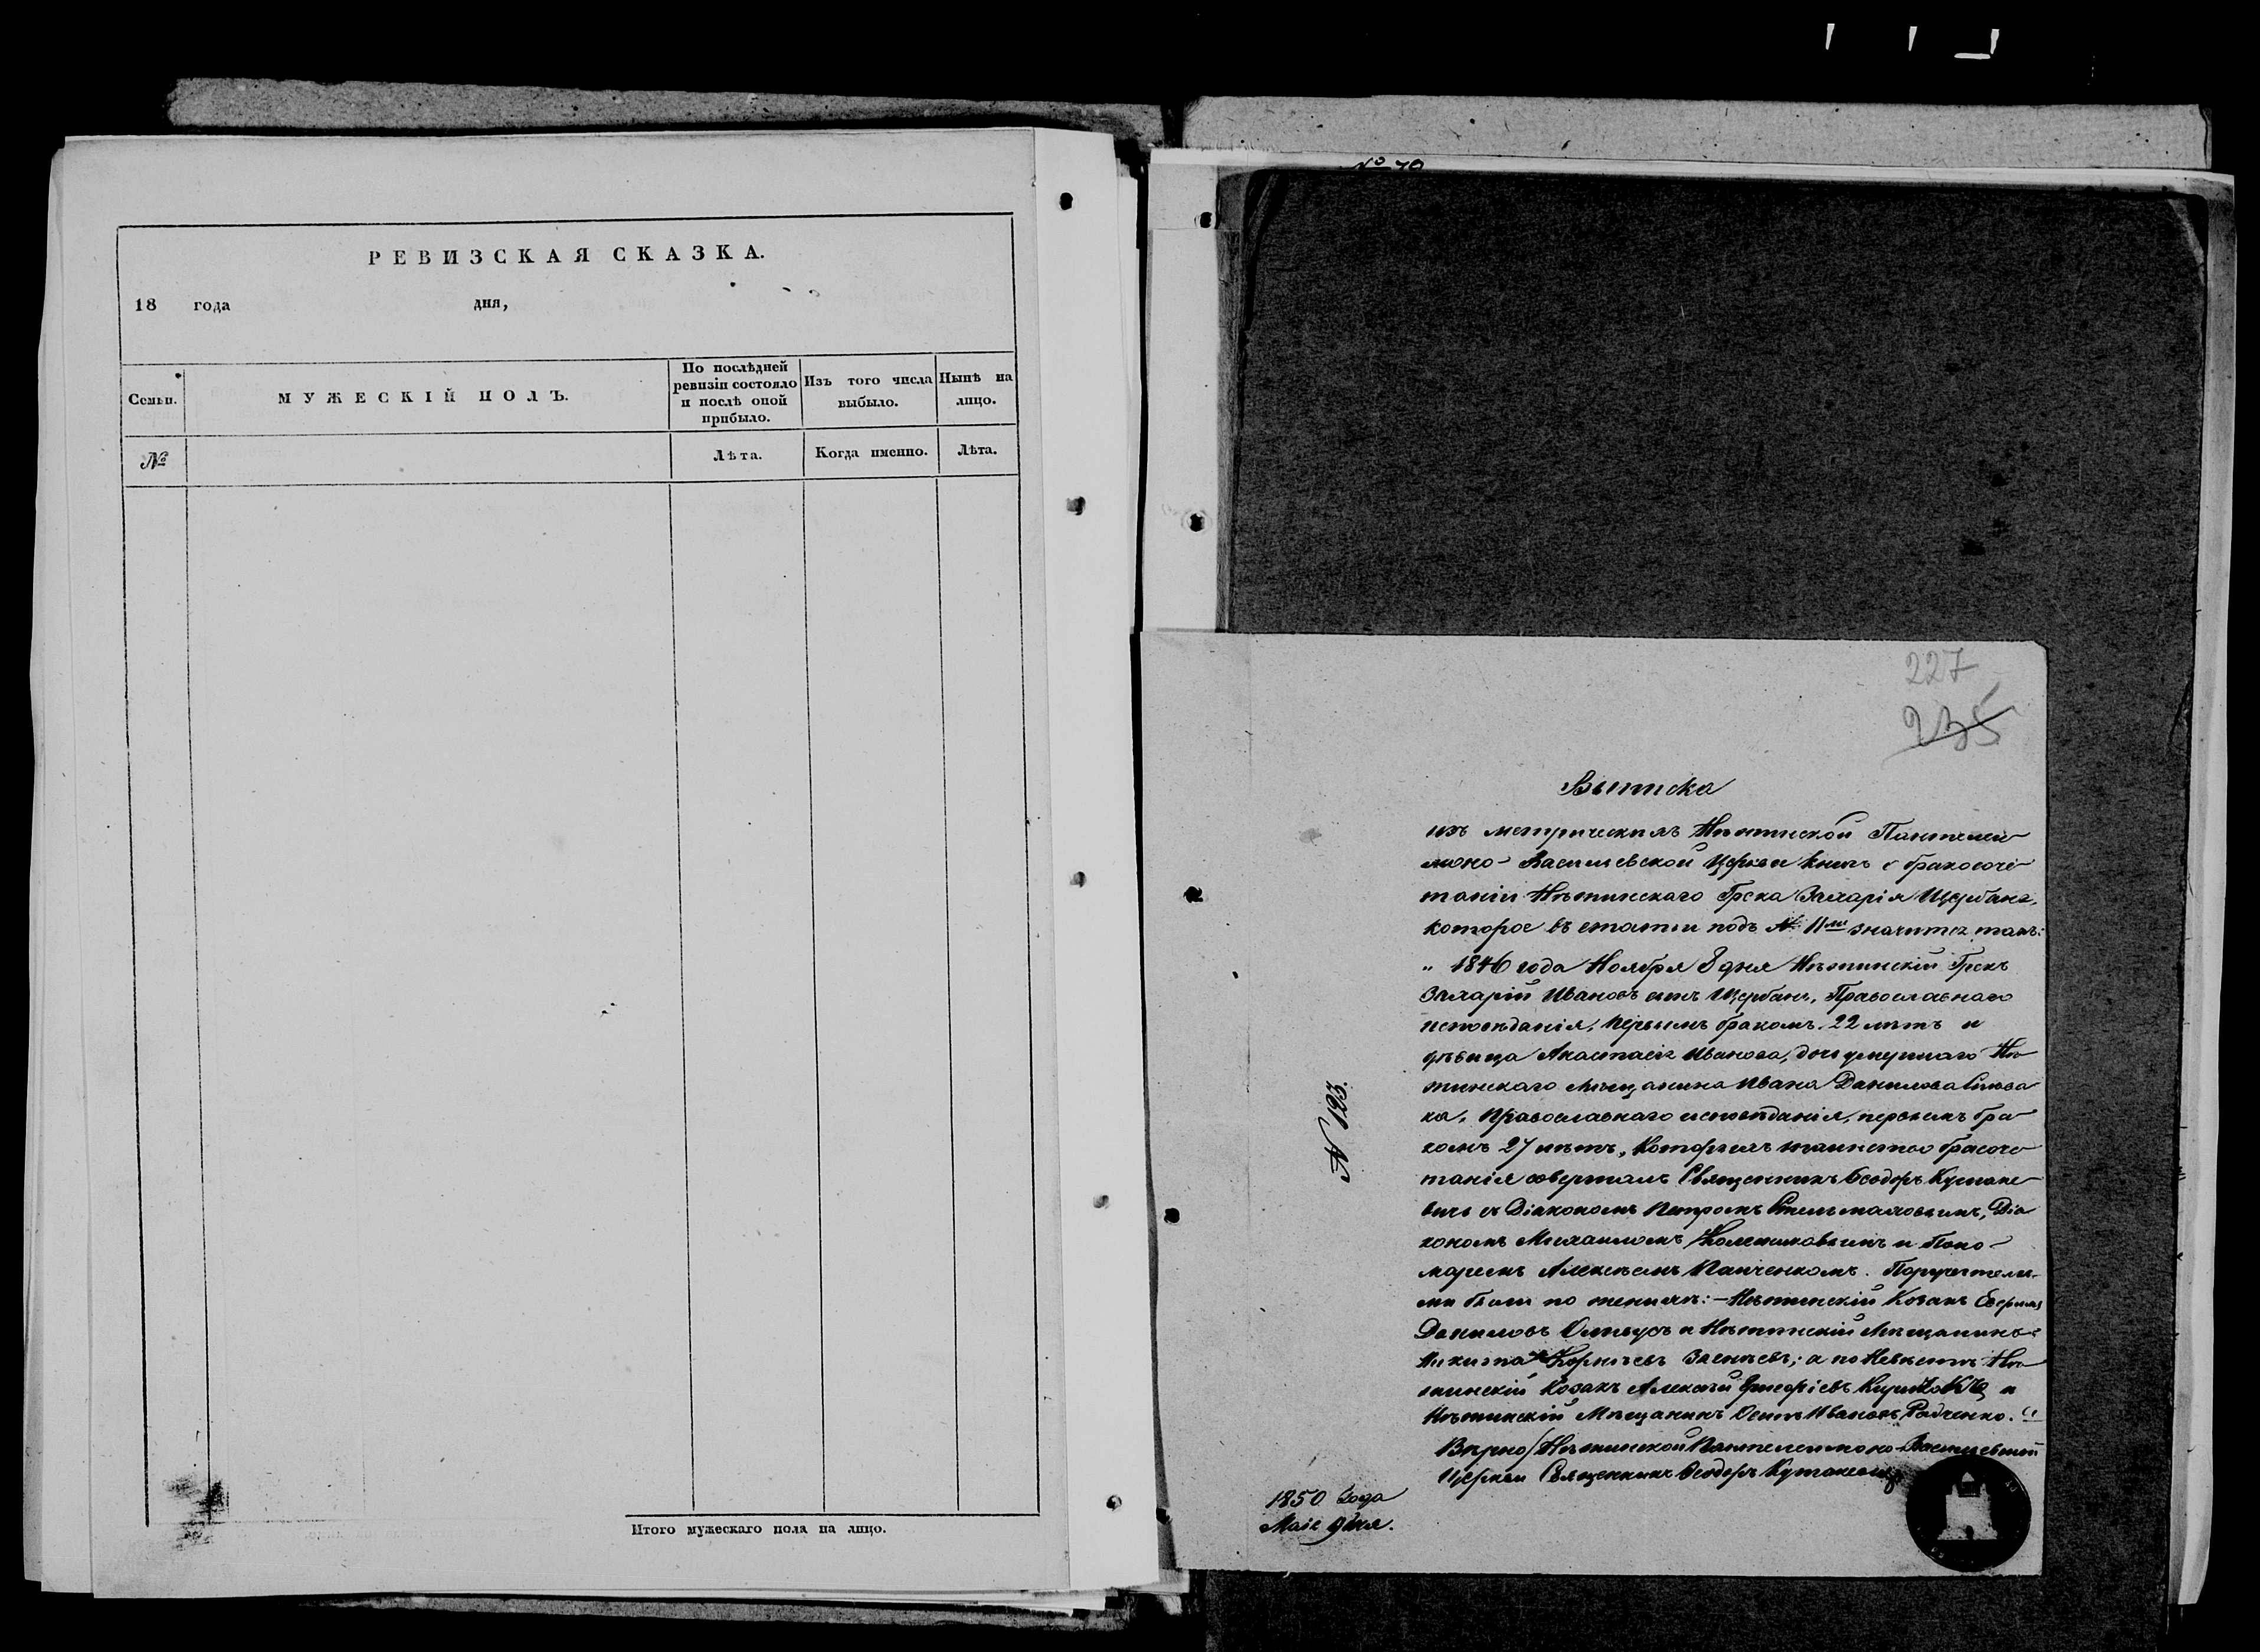 № 70
РЕВИЗСКАЯ СКАЗКА.
18 года дня,
Семьи.
МУЖЕСКІЙ ПОЛЪ.
По послѣдней ревизіи состояло и послѣ оной прибыло.
Изъ того числа выбыло.
Нынѣ на лицо.
№
Лѣта.
Когда именно.
Лѣта.
Итого мужескаго пола на лицо.
227
235
Выписка
изъ метрическихъ Нѣжинской Пантелеи-
моно-Васильевской Церкви книгъ о бракосоче-
таніи Нѣжинскаго Грека Захарія Щербана,
которое въ статьи подъ № 11мъ значится такъ:
„ 1846 года Ноября 8 дня Нѣжинскій Грекъ
Захарій Ивановъ сынъ Щербанъ, Православнаго
исповѣданія, первымъ бракомъ 22 лѣтъ и
дѣвица Анастасія Иванова, дочь умершаго Нѣ-
жинскаго Мѣщанина Ивана Данилова
ка, Православнаго исповѣданія, первымъ бра-
комъ 27 лѣтъ, которыхъ таинство
танія совершалъ Священникъ Ѳеодоръ Кутоне-
вичъ съ Діакономъ Петромъ Стельмаховымъ, Діа-
кономъ Михаиломъ и Поно-
маремъ Алексѣемъ Панченкомъ. Поручителя-
ми были по женихѣ: – Нѣжинскій Козакъ
Даниловъ и Нѣжинскій Мѣщанинъ
Никита Корнѣевъ а по невѣстѣ Нѣ-
жинскій Козакъ Алексѣй Григоріевъ и
Нѣжинскій Мѣщанинъ Осипъ Ивановъ Радченко. “
Вѣрно: Нѣжинской Пантелеимоно-Васильевской
Церкви Священникъ Ѳеодоръ Кутоневичъ
№ 123.
1850 Года
Маія 9 дня.